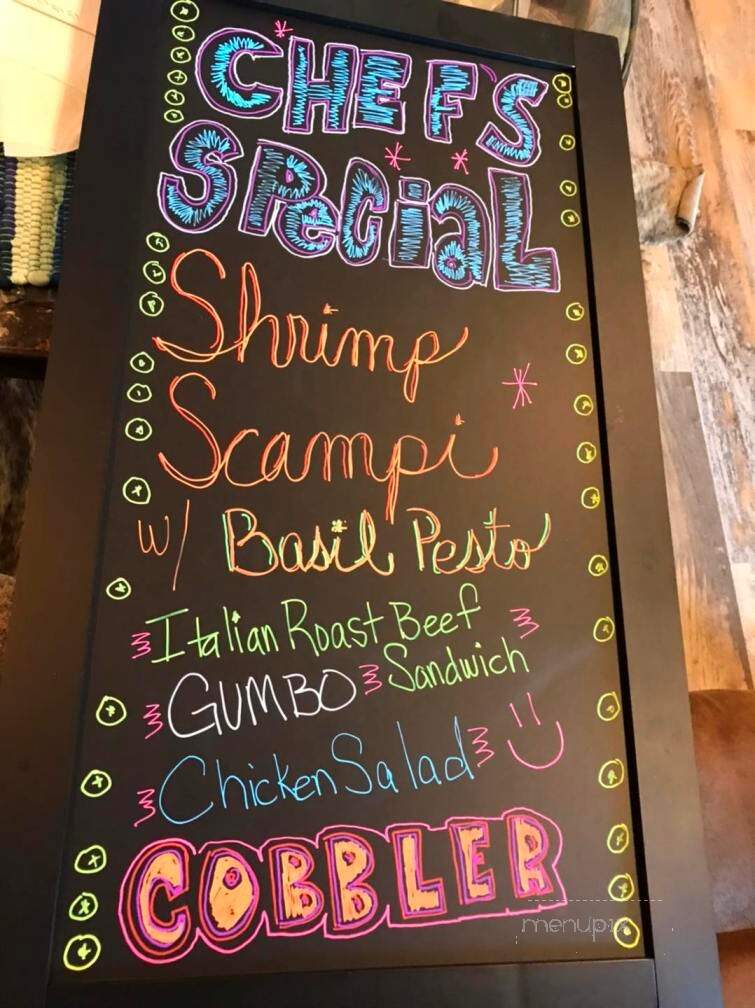 CHEF'S
SPeCiaL
Shrimp
Scampi
w/ Basil Pesto
Italian Roast Beef
Sandwich
GUMBO
Chicken Salad
COBBLER
menupix